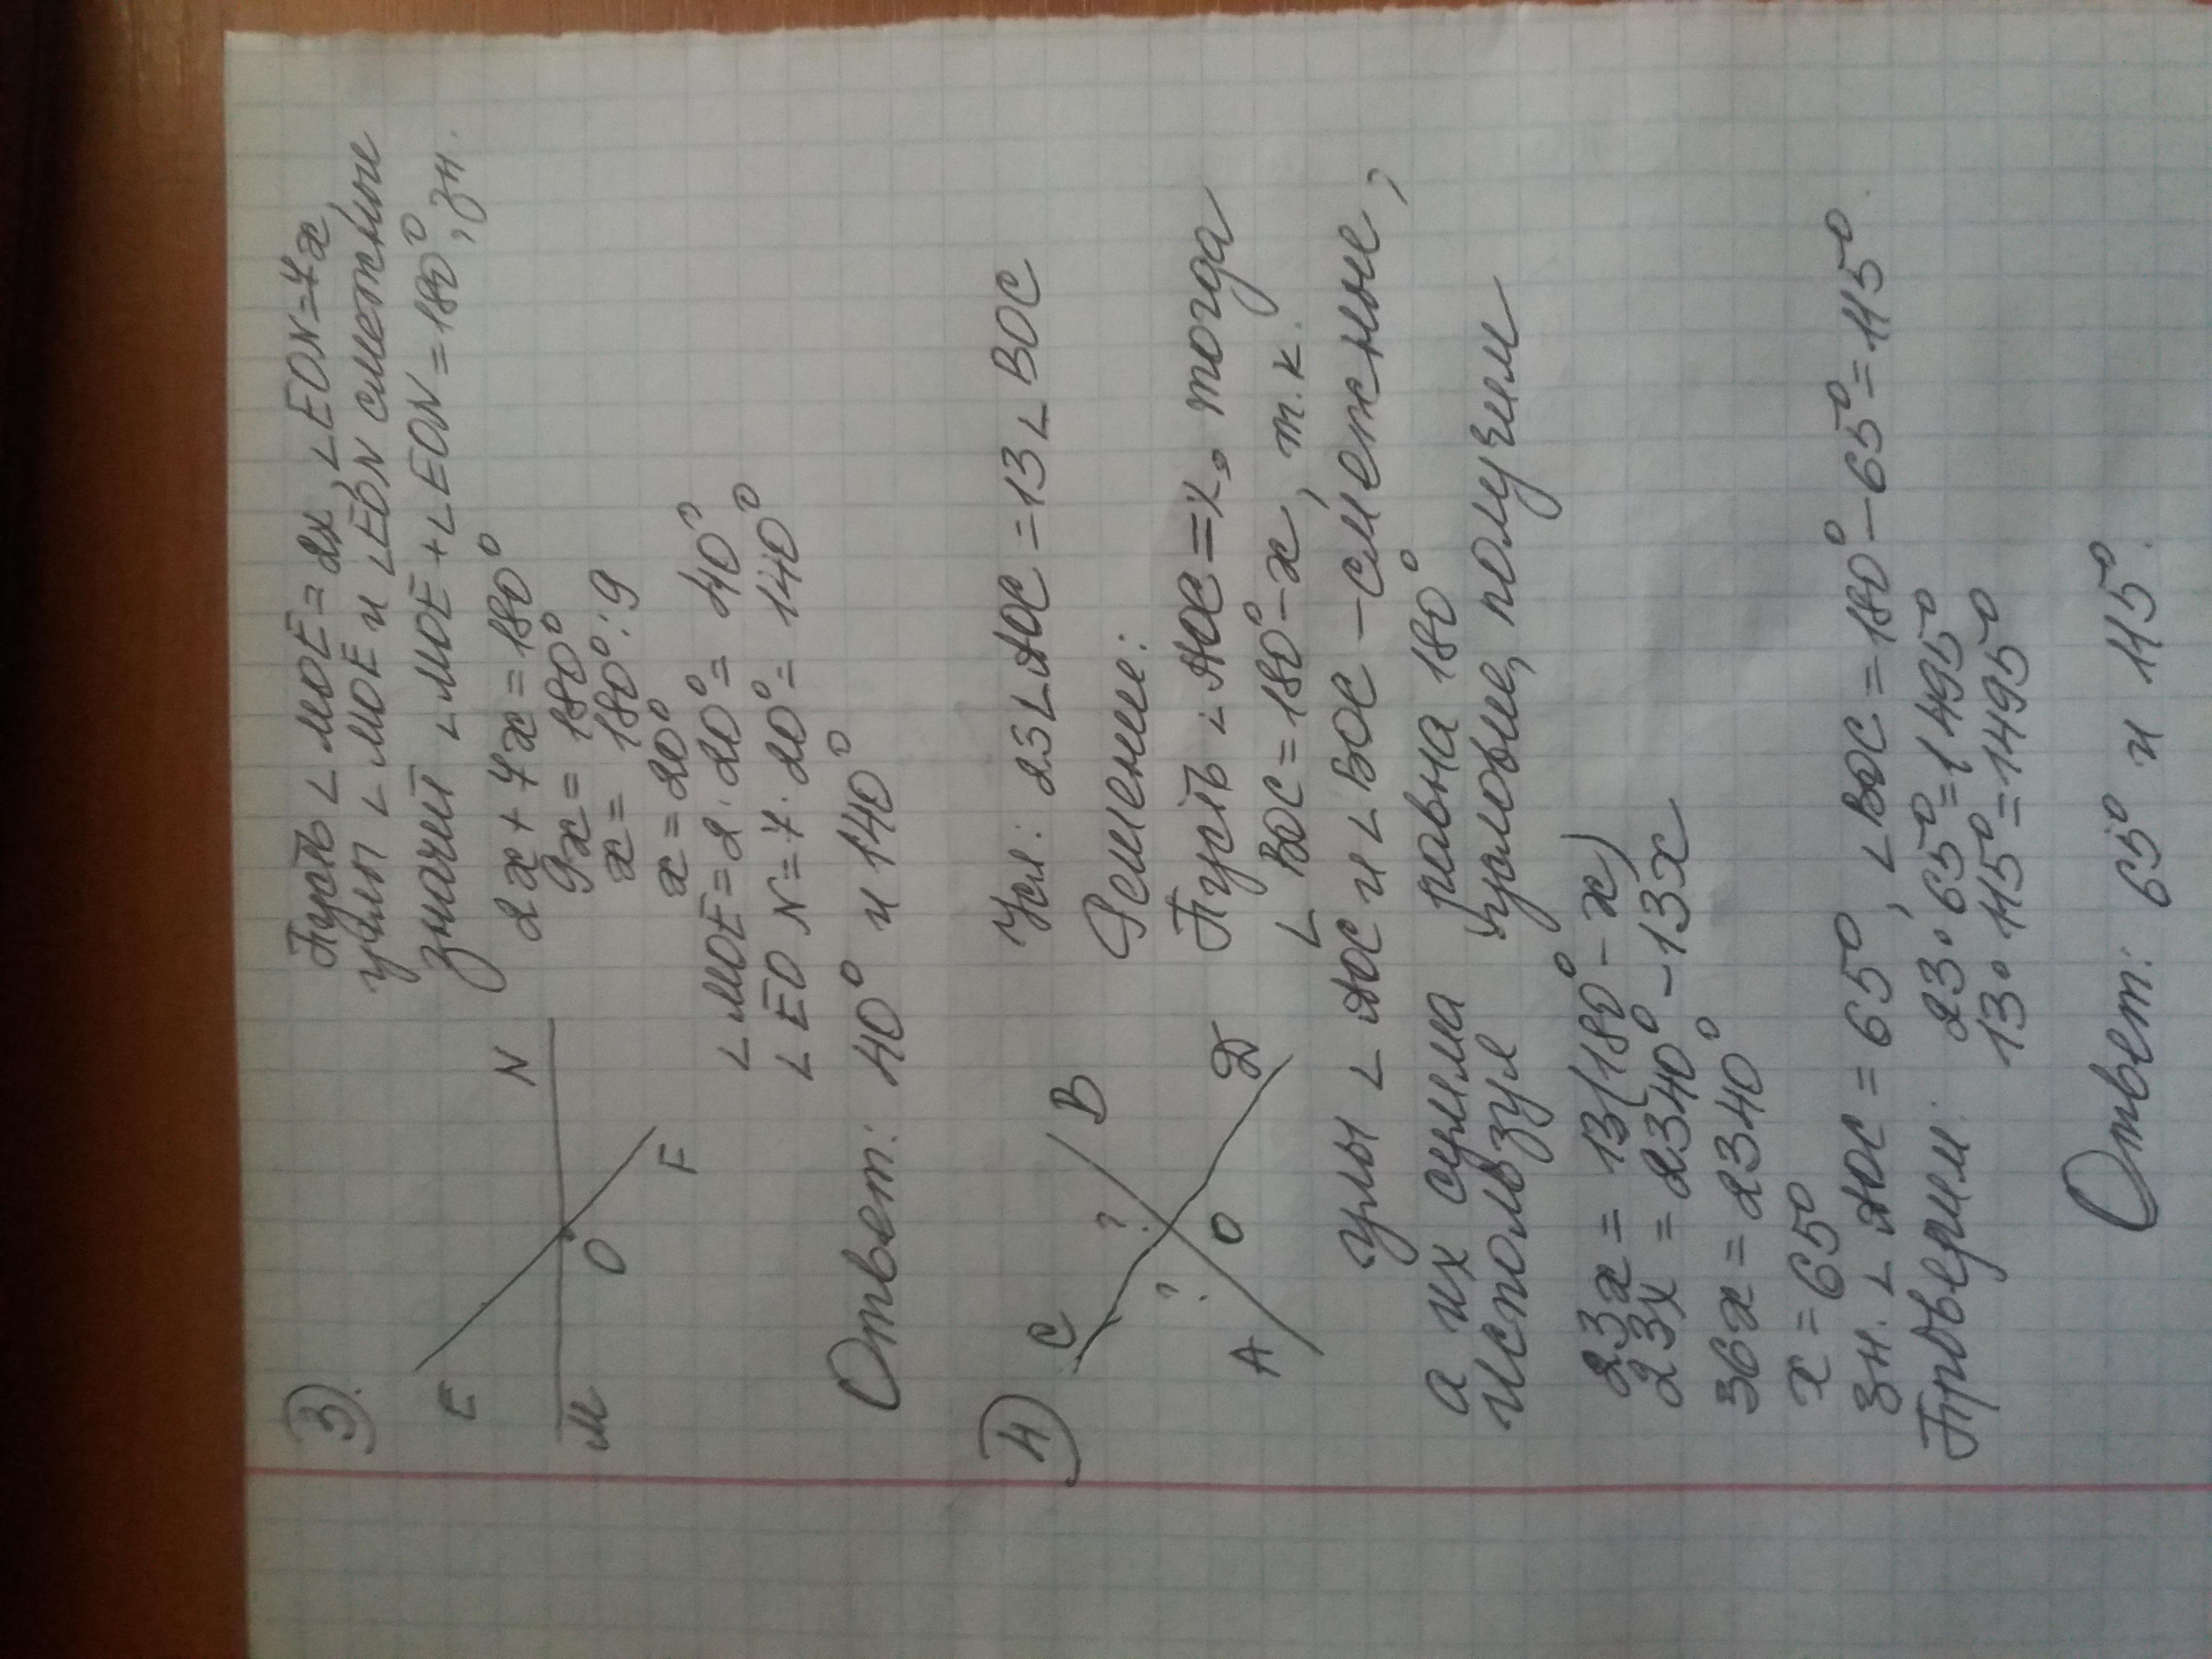 3).
E
N
M
O
F
Пусть ∠MOE = 2x, ∠EON = 7x,
углы ∠MOE и ∠EON смежные
значит ∠MOE + ∠EON = 180°, зн.
2x + 7x = 180°
9x = 180°
x = 180° : 9
x = 20°
∠MOE = 2 · 20° = 40°
∠EON = 7 · 20° = 140°
Ответ: 40° и 140°
4)
C
B
?
?
A
O
D
Усл: 23∠AOC = 13∠BOC
Решение:
Пусть ∠AOC = x, тогда
∠BOC = 180° - x, т.к.
углы ∠AOC и ∠BOC - смежные,
а их сумма равна 180°
используя условие, получим
23x = 13(180° - x)
23x = 2340° - 13x
36x = 2340°
x = 65°
Зн. ∠AOC = 65°, ∠BOC = 180° - 65° = 115°.
Проверим: 23 · 65° = 1495°
13 · 115° = 1495°
Ответ: 65° и 115°.